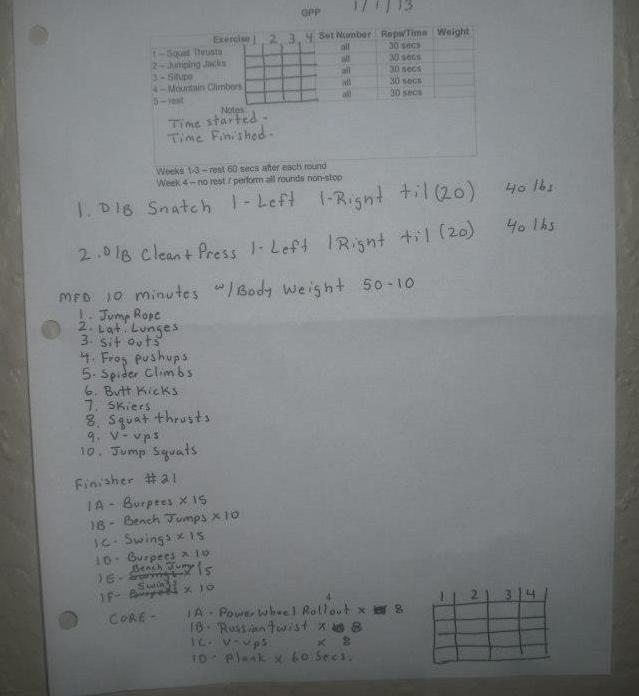 GPP 1/1/13
Exercise 1 2 3 4 Set Number Reps/Time Weight
1 – Squat Thrusts all 30 secs
2 – Jumping Jacks all 30 secs
3 – Situps all 30 secs
4 – Mountain Climbers all 30 secs
5 – rest all 30 secs
Notes:
Time started -
Time Finished -
Weeks 1-3 – rest 60 secs after each round
Week 4 – no rest / perform all rounds non-stop
1. D/B Snatch 1-Left 1-Right til (20) 40 lbs
2. D/B Clean + Press 1-Left 1 Right til (20) 40 lbs
MFD 10 minutes w/Body Weight 50-10
1. Jump Rope
2. Lat. Lunges
3. Sit outs
4. Frog pushups
5. Spider Climbs
6. Butt Kicks
7. Skiers
8. Squat thrusts
9. V-ups
10. Jump Squats
Finisher #21
1A - Burpees x 15
1B - Bench Jumps x 10
1C - Swings x 15
1D - Burpees x 10
1E - Bench Jump 15
1F - Swings x 10
CORE - 1A - Power Wheel Rollout x 8
1B - Russian twist x 8
1C. V-ups x 8
1D - Plank x 60 Secs.
1 2 3 4